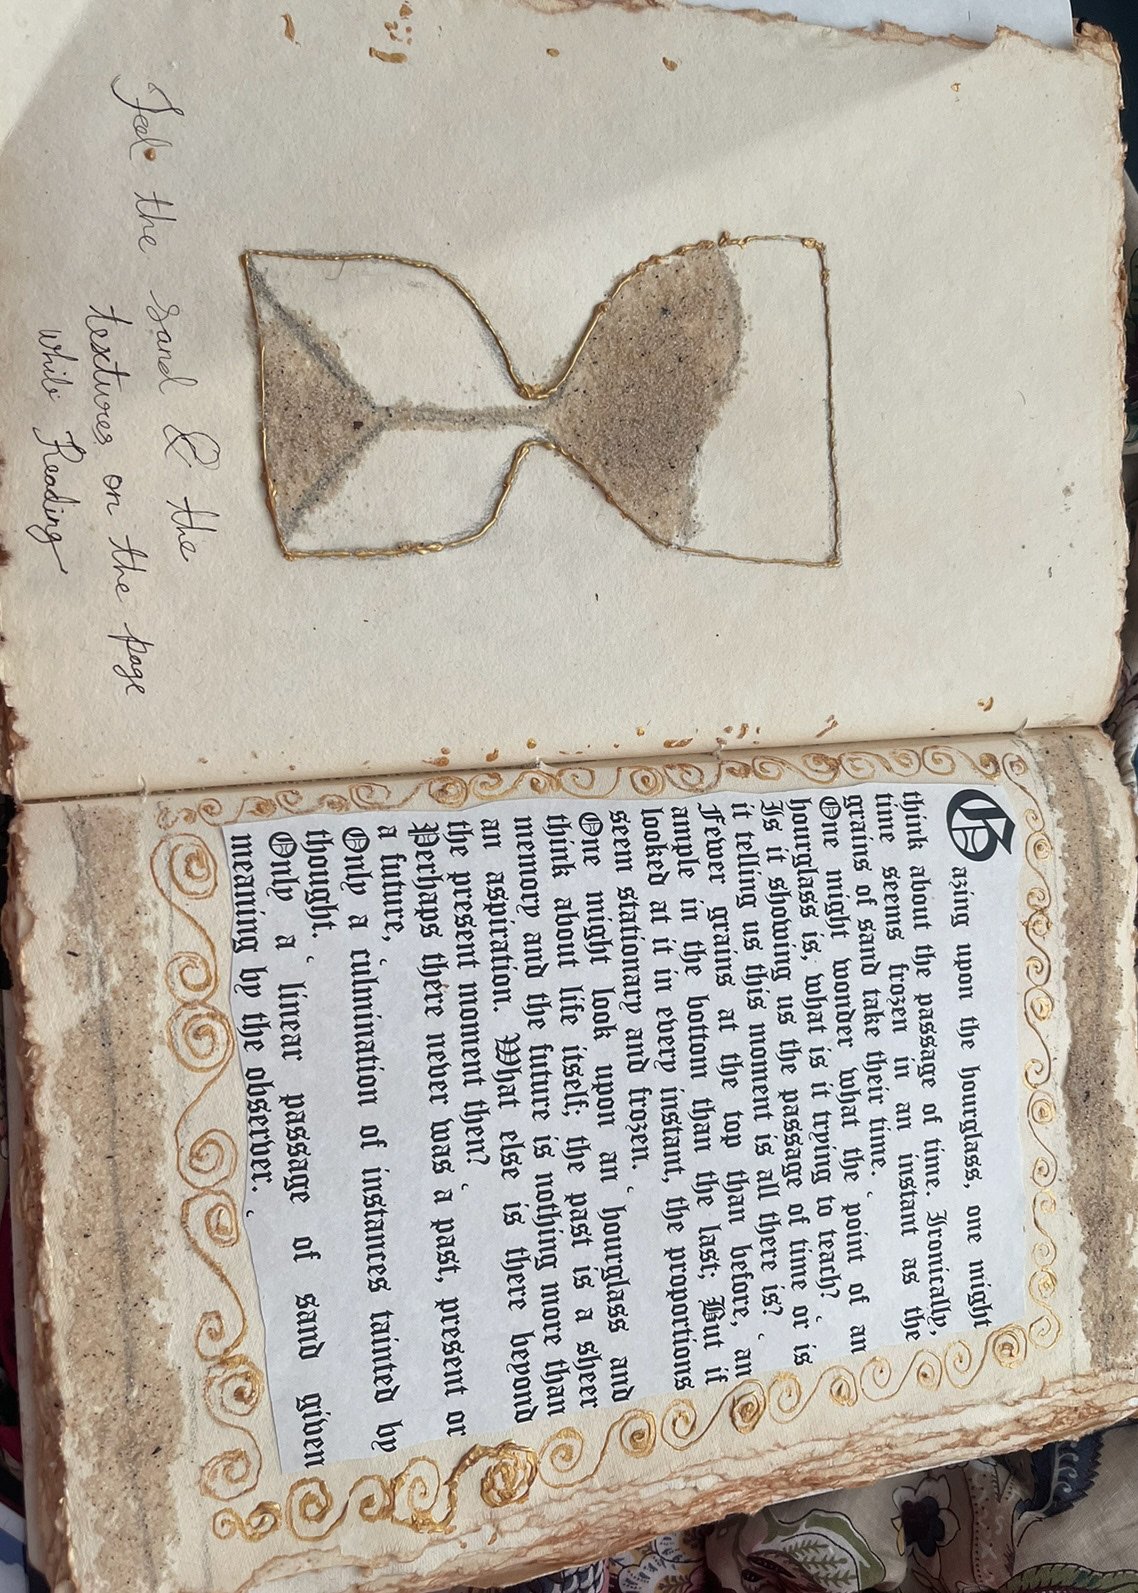 Feel the sand & the
textures on the page
while Reading
Gazing upon the hourglass, one might
think about the passage of time. Ironically,
time seems frozen in an instant as the
grains of sand take their time.
One might wonder what the point of an
hourglass is, what is it trying to teach?
Is it showing us the passage of time or is
it telling us this moment is all there is?
Fewer grains at the top than before, an
ample in the bottom than the last; But if
looked at it in every instant, the proportions
seem stationary and frozen.
One might look upon an hourglass and
think about life itself; the past is a sheer
memory and the future is nothing more than
an aspiration. What else is there beyond
the present moment then?
Perhaps there never was a past, present or
a future,
Only a culmination of instances tainted by
thought.
Only a linear passage of sand given
meaning by the observer.